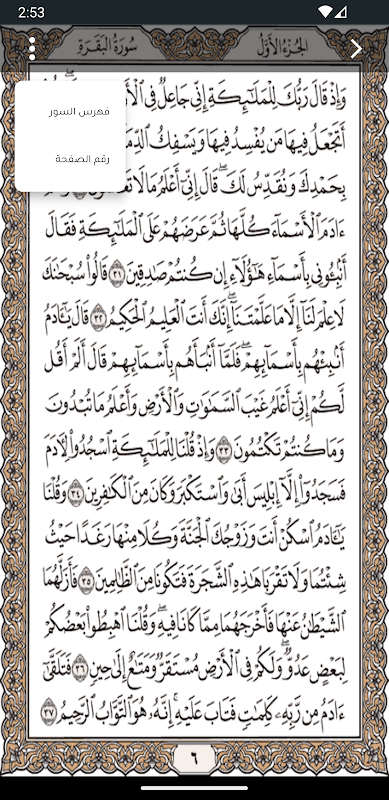 2:53
سُورَةُ البَقَرَةِ
الجُزءُ الأَوَّلُ
فهرس السور
رقم الصفحة
وَإِذْ قَالَ رَبُّكَ لِلْمَلَـٰٓئِكَةِ إِنِّى جَاعِلٌ فِى ٱلْأَ
أَتَجْعَلُ فِيهَا مَن يُفْسِدُ فِيهَا وَيَسْفِكُ ٱلدِّمَ
بِحَمْدِكَ وَنُقَدِّسُ لَكَ ۖ قَالَ إِنِّىٓ أَعْلَمُ مَا لَا تَعْ
ءَادَمَ ٱلْأَسْمَآءَ كُلَّهَا ثُمَّ عَرَضَهُمْ عَلَى ٱلْمَلَـٰٓئِكَةِ فَقَالَ
أَنۢبِـُٔونِى بِأَسْمَآءِ هَـٰٓؤُلَآءِ إِن كُنتُمْ صَـٰدِقِينَ ٣١ قَالُوا۟ سُبْحَـٰنَكَ
لَا عِلْمَ لَنَآ إِلَّا مَا عَلَّمْتَنَآ ۖ إِنَّكَ أَنتَ ٱلْعَلِيمُ ٱلْحَكِيمُ ٣٢ قَالَ يَـٰٓـَٔادَمُ
أَنۢبِئْهُم بِأَسْمَآئِهِمْ ۖ فَلَمَّآ أَنۢبَأَهُم بِأَسْمَآئِهِمْ قَالَ أَلَمْ أَقُل
لَّكُمْ إِنِّىٓ أَعْلَمُ غَيْبَ ٱلسَّمَـٰوَٰتِ وَٱلْأَرْضِ وَأَعْلَمُ مَا تُبْدُونَ
وَمَا كُنتُمْ تَكْتُمُونَ ٣٣ وَإِذْ قُلْنَا لِلْمَلَـٰٓئِكَةِ ٱسْجُدُوا۟ لِـَٔادَمَ
فَسَجَدُوٓا۟ إِلَّآ إِبْلِيسَ أَبَىٰ وَٱسْتَكْبَرَ وَكَانَ مِنَ ٱلْكَـٰفِرِينَ ٣٤ وَقُلْنَا
يَـٰٓـَٔادَمُ ٱسْكُنْ أَنتَ وَزَوْجُكَ ٱلْجَنَّةَ وَكُلَا مِنْهَا رَغَدًا حَيْثُ
شِئْتُمَا وَلَا تَقْرَبَا هَـٰذِهِ ٱلشَّجَرَةَ فَتَكُونَا مِنَ ٱلظَّـٰلِمِينَ ٣٥ فَأَزَلَّهُمَا
ٱلشَّيْطَـٰنُ عَنْهَا فَأَخْرَجَهُمَا مِمَّا كَانَا فِيهِ ۖ وَقُلْنَا ٱهْبِطُوا۟ بَعْضُكُمْ
لِبَعْضٍ عَدُوٌّ ۖ وَلَكُمْ فِى ٱلْأَرْضِ مُسْتَقَرٌّ وَمَتَـٰعٌ إِلَىٰ حِينٍ ٣٦ فَتَلَقَّىٰٓ
ءَادَمُ مِن رَّبِّهِۦ كَلِمَـٰتٍ فَتَابَ عَلَيْهِ ۚ إِنَّهُۥ هُوَ ٱلتَّوَّابُ ٱلرَّحِيمُ ٣٧
٦